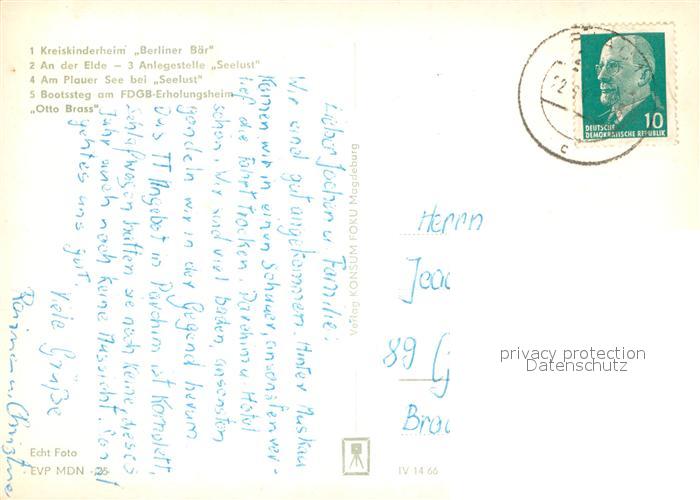 1 Kreiskinderheim „Berliner Bär“
2 An der Elde — 3 Anlegestelle „Seelust“
4 Am Plauer See bei „Seelust“
5 Bootssteg am FDGB-Erholungsheim
„Otto Brass“
Lieber Jochen u. Familie!
Wir sind gut angekommen. Hinter Muskau
kamen wir in einen Schauer, ansonsten ver-
lief die Fahrt trocken. Parchim u. Hotel
schön. Wir sind viel baden, ansonsten
gondeln wir in der Gegend herum
Das TT Angebot in Parchim ist komplett,
Schlafwagen hatten sie noch keine dieses
Jahr auch noch keine Aussicht. Sonst
geht es uns gut.
Viele Grüße
Rainer u. Christine
Verlag KONSUM FOKU Magdeburg
Echt Foto
EVP MDN -,25
IV 14 66
10
DEUTSCHE
DEMOKRATISCHE REPUBLIK
c
Herrn
89
privacy protection
Datenschutz